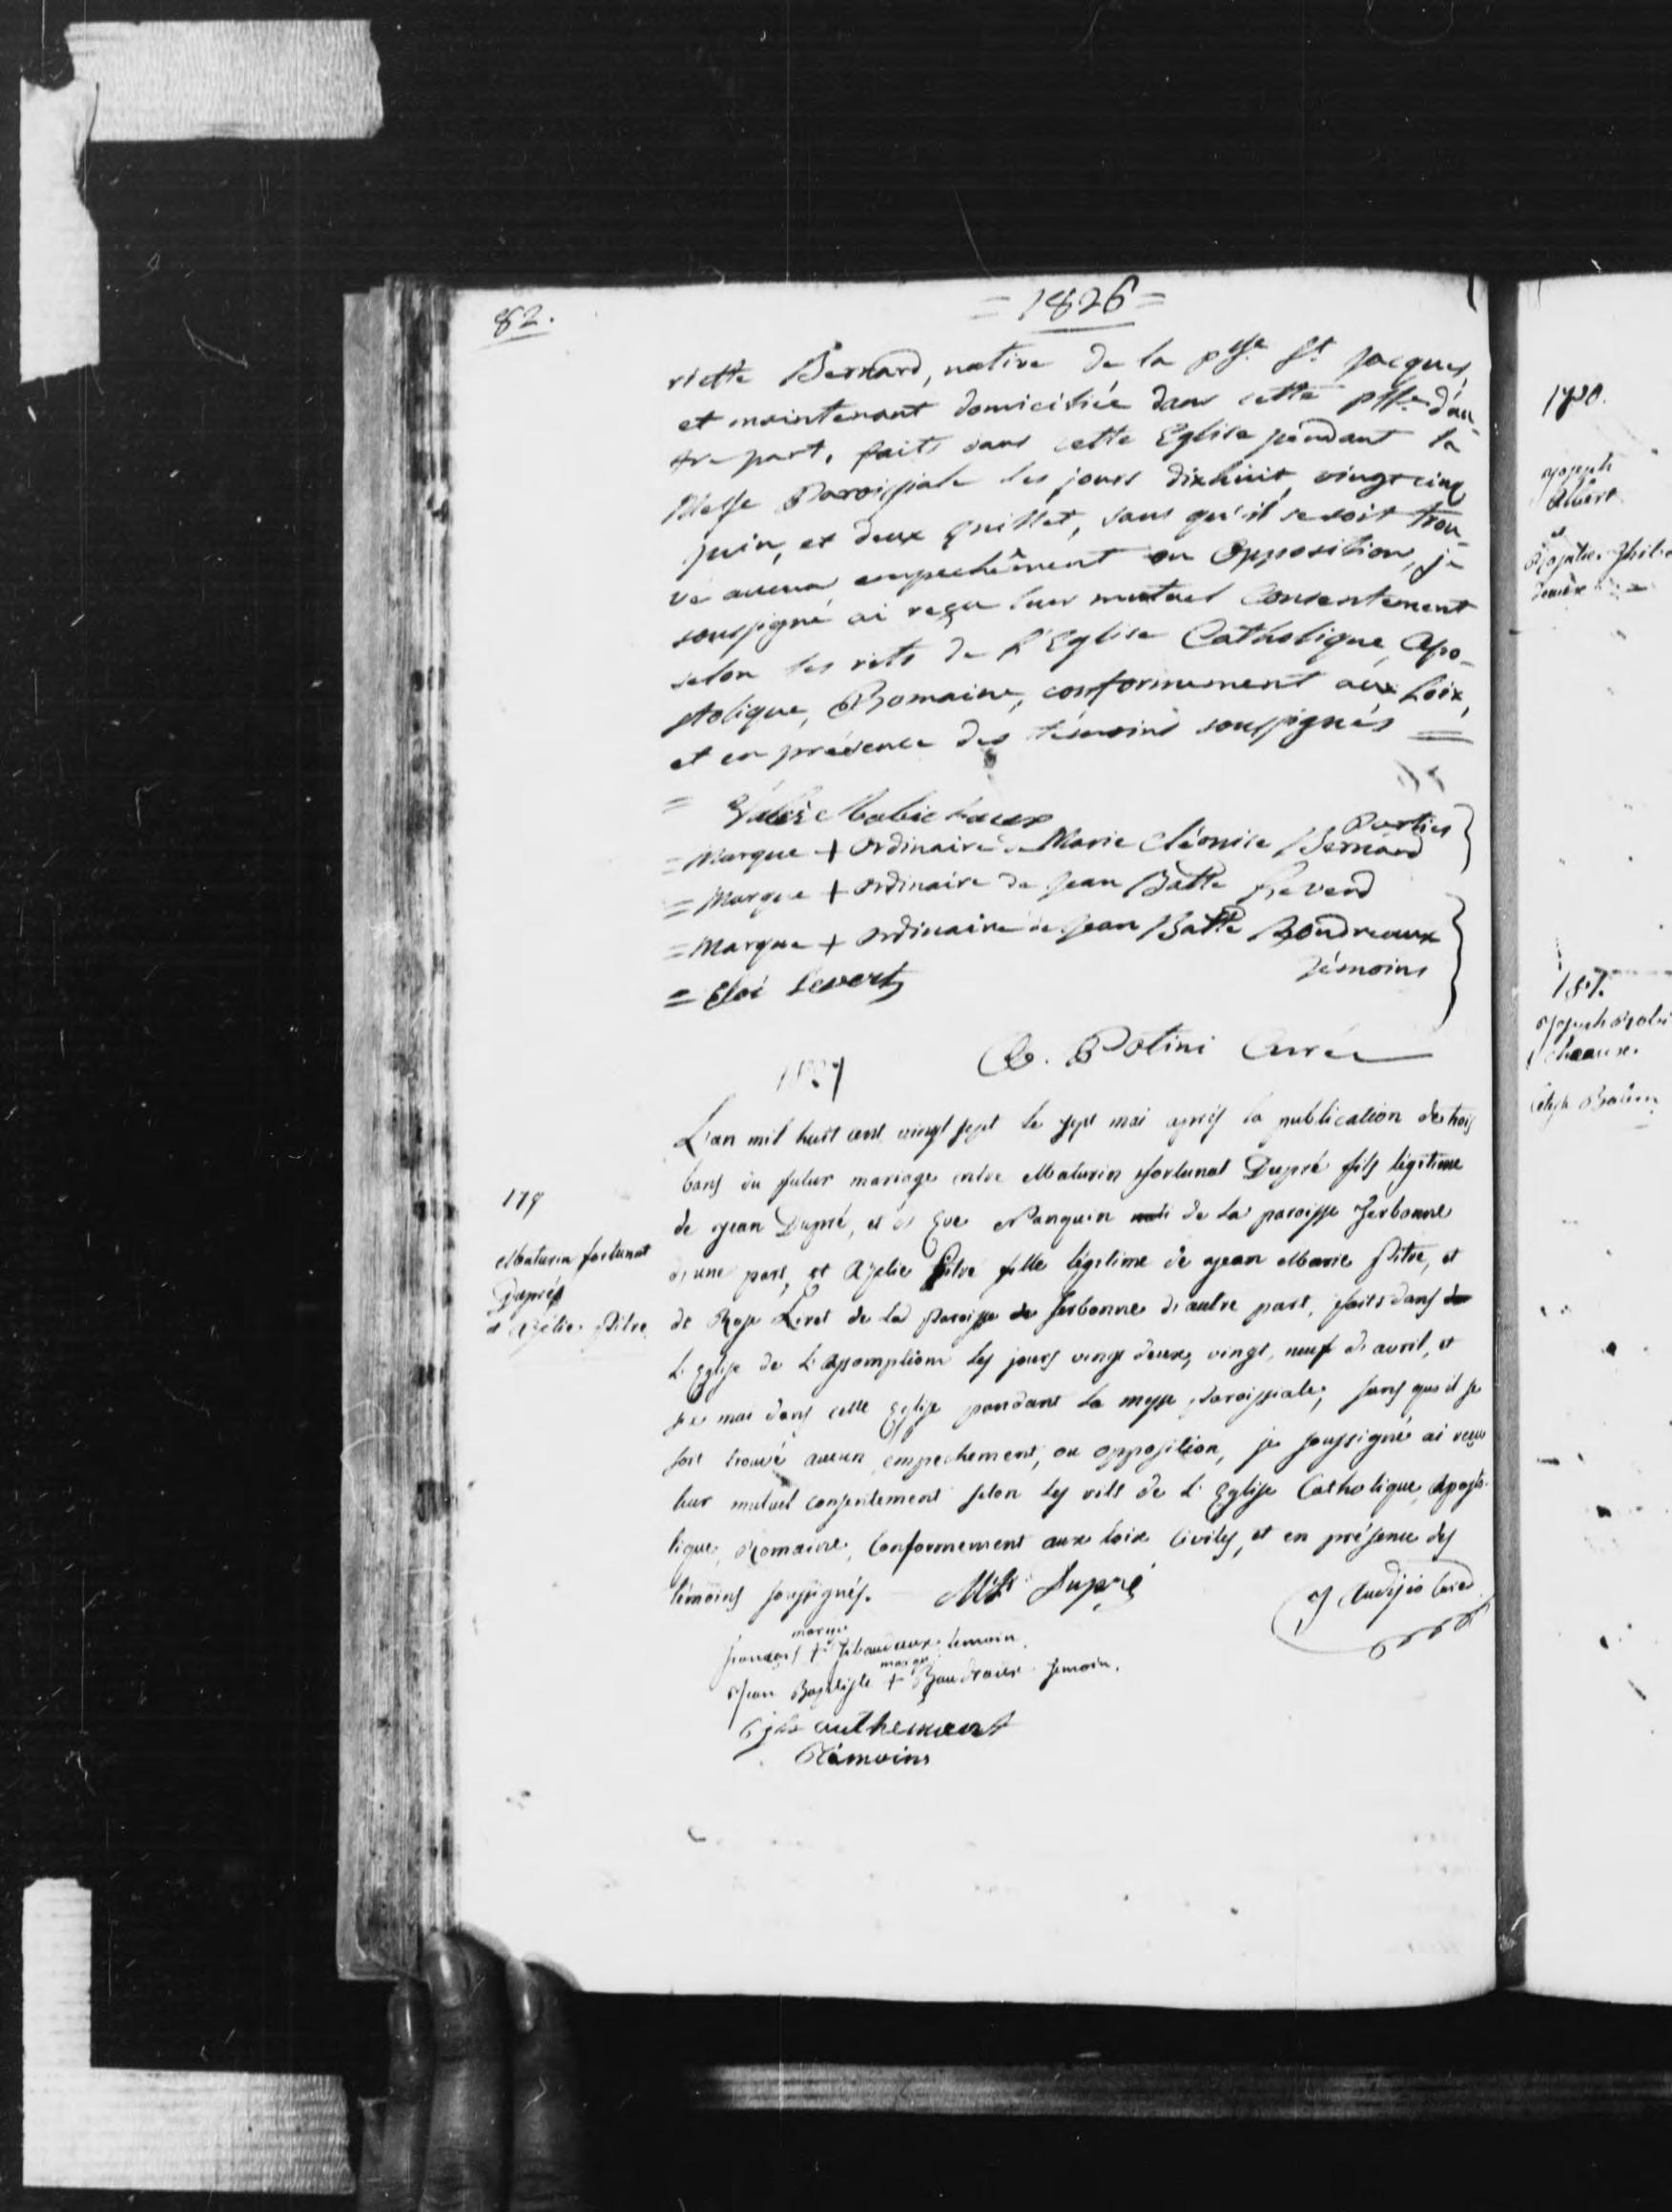 82.
= 1826 =
riette Bernard, native de la psse St Jacques,
et maintenant domiciliée dans cette psse d'au-
tre part, faits dans cette Eglise pendant la
Messe Paroissiale les jours dixhuit, vingt cinq
juin, et deux Juillet, sans qu'il se soit trou-
vé aucun empechêment ou Opposition, je
soussigné ai reçu leur mutuel Consentement
selon les rits de l'Eglise Catholique, Apo-
stolique, Romaine, conformement aux Loix,
et en présence des témoins soussignés =
= Valéri Robichaux
Parties
= Marque + Ordinaire de Marie Cléonise Bernard
= Marque + Ordinaire de Jean Batte Prevend
= Marque + Ordinaire de Jean Batte Boudreaux
= Eloi Levert
Témoins
C. Potini Curé
1827
179
Maturin fortunat
Dupré
et Azélie Pitre
L'an mil huit cent vingt sept le sept mai après la publication de trois
bans du futur mariage entre Maturin fortunat Dupré fils légitime
de Jean Dupré, et de Eve Nanquin nati de la paroisse Terbonne
d'une part, et Azelie Pitre fille légitime de Jean Marie Pitre, et
de Rose Liret de la Paroisse de Terbonne d'autre part, faits dans
L'Eglise de L'Assomption les jours vingt deux, vingt neuf d'avril, et
six mai dans cette Eglise pendant la messe Paroissiale, sans que il se
soit trouvé aucun empechement, ou opposition, je soussigné ai reçu
leur mutuel consentement selon les rits de L'Eglise Catholique, Aposto-
lique, Romaine, Conformement aux loix Civiles, et en présence des
témoins soussignés. Mtr Dupré
J Audisio Curé
marque
françois + Tibaudaux temoin.
marque
Jean Baptiste + Baudraux Temoin.
authement
Témoins
1780.
Joseph
Albert
et
Rosalie Thibo
deaux
181.
Joseph Robi
chaeaux